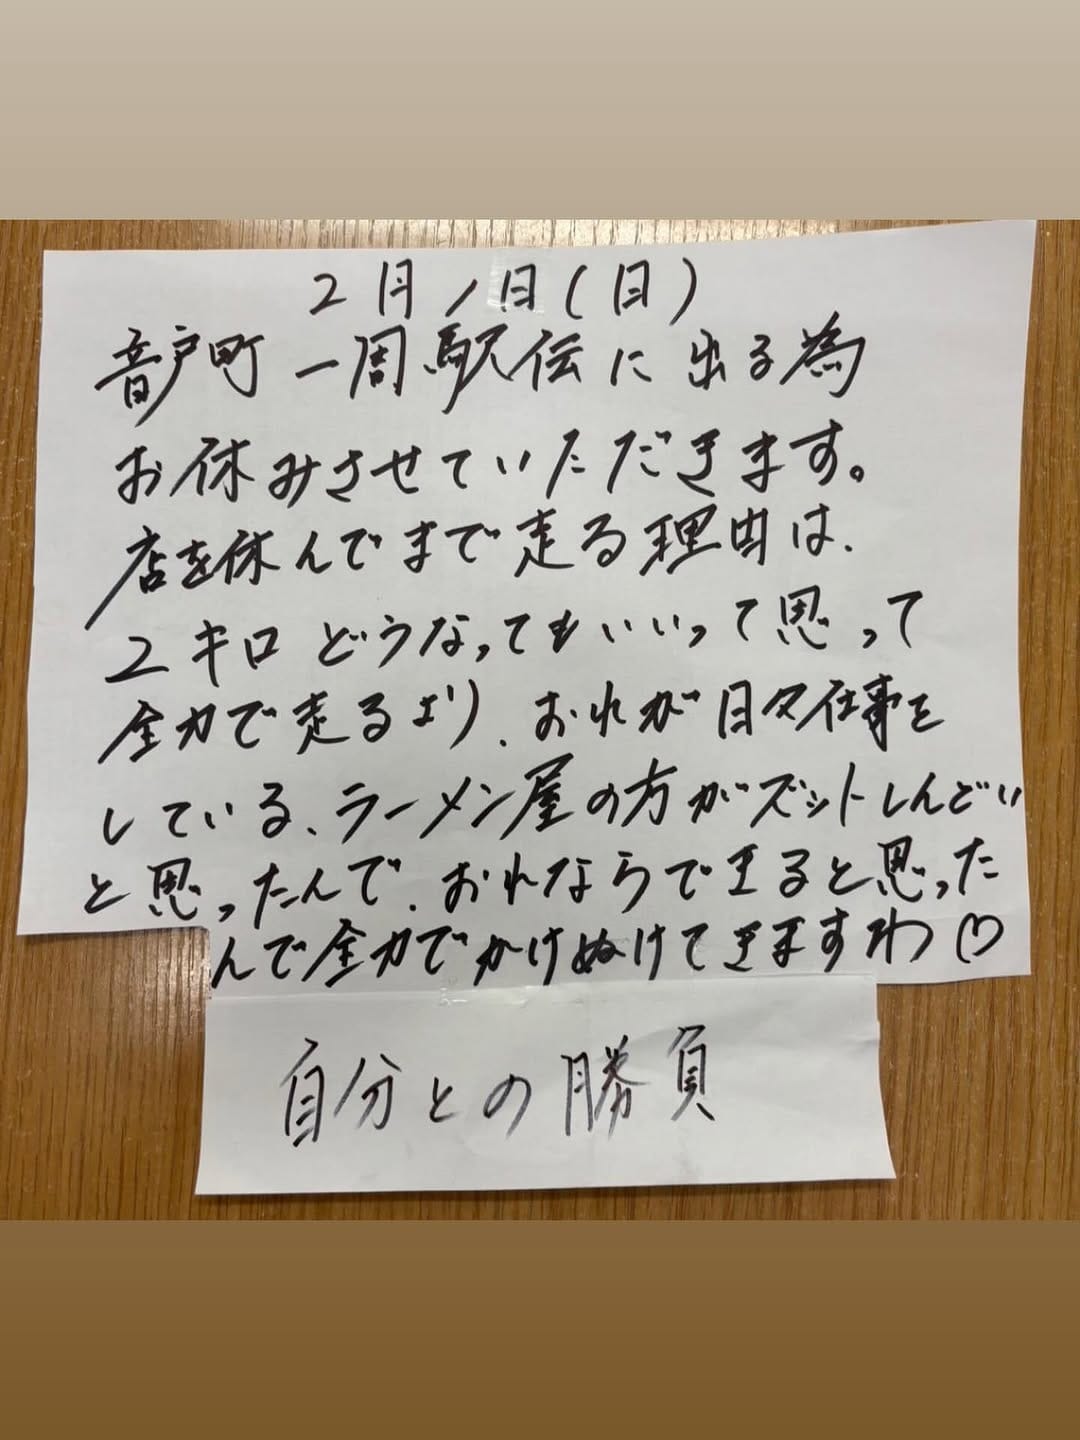 2月1日(日)
音戸町一周駅伝に出る為
お休みさせていただきます。
店を休んでまで走る理由は、
2キロどうなってもいいって思って
全力で走るより、おれが日々仕事を
している、ラーメン屋の方がズットしんどい
と思ったんで、おれならできると思った
んで全力でかけぬけてきますわ♡
自分との勝負